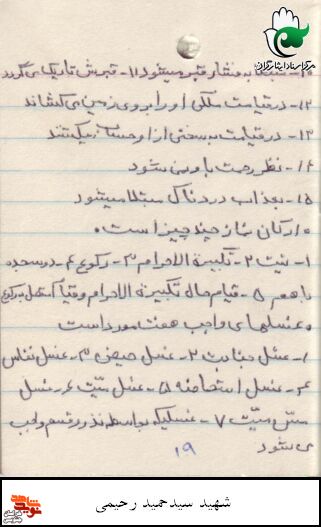 مرکز اسناد ایثارگران
۱۰- مبتلا به فشار قبر میشود ۱۱- قبرش تاریک می گردد
۱۲- در قیامت ملکی او را بروی زمین می کشاند
۱۳- در قیامت به سختی از او حساب میکشند
۱۴- نظر رحمت باو نمی شود
۱۵- بعذاب دردناک مبتلا میشود
ارکان نماز چند چیز است
۱- نیت ۲- تکبیرة الاحرام ۳- رکوع ۴- دو سجده
با هم ۵- قیام حال تکبیرة الاحرام و قیام متصل به رکوع
غسلهای واجب هفت مورد است
۱- غسل جنابت ۲- غسل حیض ۳- غسل نفاس
۴- غسل استحاضه ۵- غسل میّت ۶- غسل
مسّ میّت ۷- غسلیکه بواسطه نذر و قسم واجب
می شود
۱۹
شهید سیدحمید رحیمی